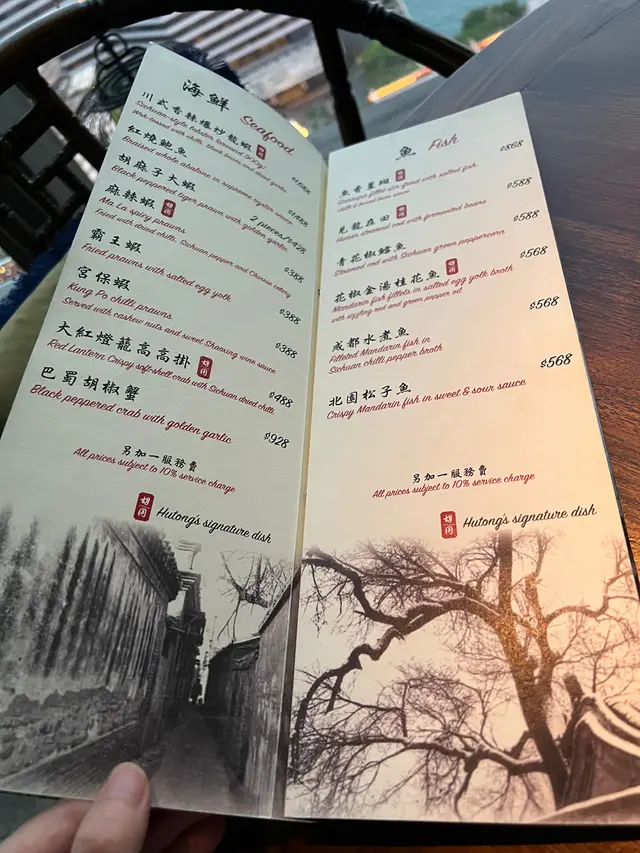 海鮮 Seafood
川式香辣爆炒龍蝦 胡同
Sichuan-style lobster tornado (900g)
Wok-tossed with chilli, black beans and dried garlic
紅燒鮑魚
Braised whole abalone in supreme oyster sauce
胡麻子大蝦
Black peppered tiger prawn with golden garlic
2 pieces/$428
麻辣蝦 胡同
Ma La spicy prawns
Fried with dried chilli, Sichuan pepper and Chinese celery
$388
霸王蝦
Fried prawns with salted egg yolk
$388
宮保蝦
Kung Po chilli prawns
Served with cashew nuts and sweet Shaoxing wine sauce
$388
大紅燈籠高高掛 胡同
Red Lantern Crispy soft-shell crab with Sichuan dried chilli
$488
巴蜀胡椒蟹
Black peppered crab with golden garlic
$928
另加一服務費
All prices subject to 10% service charge
胡同 Hutong's signature dish
魚 Fish
魚香星斑 胡同
$868
見龍在田 胡同
Hunan steamed cod with fermented beans
$588
青花椒鱈魚
Steamed cod with Sichuan green peppercorn
$588
花椒金湯桂花魚 胡同
Mandarin fish fillets in salted egg yolk broth
with sizzling red and green pepper oil
$568
成都水煮魚
Filleted Mandarin fish in
Sichuan chilli pepper broth
$568
北國松子魚
Crispy Mandarin fish in sweet & sour sauce
$568
另加一服務費
All prices subject to 10% service charge
胡同 Hutong's signature dish